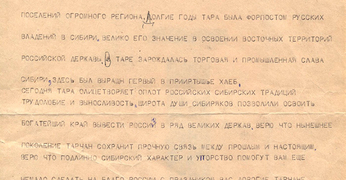 ПОСЕЛЕНИЙ ОГРОМНОГО РЕГИОНА. ДОЛГИЕ ГОДЫ ТАРА БЫЛА ФОРПОСТОМ РУССКИХ
ВЛАДЕНИЙ В СИБИРИ, ВЕЛИКО ЕГО ЗНАЧЕНИЕ В ОСВОЕНИИ ВОСТОЧНЫХ ТЕРРИТОРИЙ
РОССИЙСКОЙ ДЕРЖАВЫ. В ТАРЕ ЗАРОЖДАЛАСЬ ТОРГОВАЯ И ПРОМЫШЛЕННАЯ СЛАВА
СИБИРИ, ЗДЕСЬ БЫЛ ВЫРАЩЕН ПЕРВЫЙ В ПРИИРТЫШЬЕ ХЛЕБ.
СЕГОДНЯ ТАРА ОЛИЦЕТВОРЯЕТ ОПЛОТ РОССИЙСКИХ СИБИРСКИХ ТРАДИЦИЙ
ТРУДОЛЮБИЕ И ВЫНОСЛИВОСТЬ, ШИРОТА ДУШИ СИБИРЯКОВ ПОЗВОЛИЛИ ОСВОИТЬ
БОГАТЕЙШИЙ КРАЙ ВЫВЕСТИ РОССИЮ В РЯД ВЕЛИКИХ ДЕРЖАВ, ВЕРЮ ЧТО НЫНЕШНЕЕ
ПОКОЛЕНИЕ ТАРЧАН СОХРАНИТ ПРОЧНУЮ СВЯЗЬ МЕЖДУ ПРОШЛЫМ И НАСТОЯЩИМ,
ВЕРЮ ЧТО ПОДЛИННО СИБИРСКИЙ ХАРАКТЕР И УПОРСТВО ПОМОГУТ ВАМ ЕЩЕ
НЕМАЛО СДЕЛАТЬ НА БЛАГО РОССИИ С ПРАЗДНИКОМ ВАС ДОРОГИЕ ТАРЧАНЕ